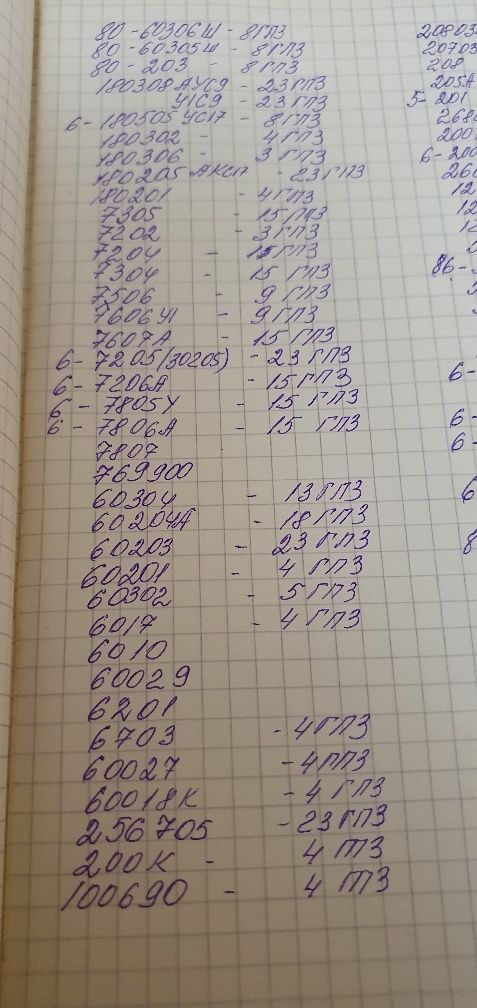 80-60306Ш - 8ГПЗ
80-60305Ш - 8ГПЗ
80-203 - 8ГПЗ
180308АУС9 - 23ГПЗ
У1С9 - 23ГПЗ
6-180505УС17 - 8ГПЗ
180302 - 4ГПЗ
180306 - 3ГПЗ
180205АКС17 - 23ГПЗ
180201 - 4ГПЗ
7305 - 15ГПЗ
7202 - 3ГПЗ
7204 - 15ГПЗ
7304 - 15 ГПЗ
7506 - 9 ГПЗ
7606У1 - 9ГПЗ
7607А - 15ГПЗ
6-7205(30205) - 23ГПЗ
6-7206А - 15ГПЗ
6-7805У - 15 ГПЗ
6-7806А - 15 ГПЗ
7807
769900
60304 - 13ГПЗ
60204А - 18ГПЗ
60203 - 23ГПЗ
60201 - 4 ГПЗ
60302 - 5ГПЗ
6017 - 4 ГПЗ
6010
60029
6201
6703 - 4ГПЗ
60027 - 4ГПЗ
60018К - 4 ГПЗ
256705 - 23ГПЗ
200К - 4 ГПЗ
100690 - 4 ГПЗ
20803
20703
208
205А
5-201
268
200
6-200
260
12
12
86-
6-
6-
6-
6
8